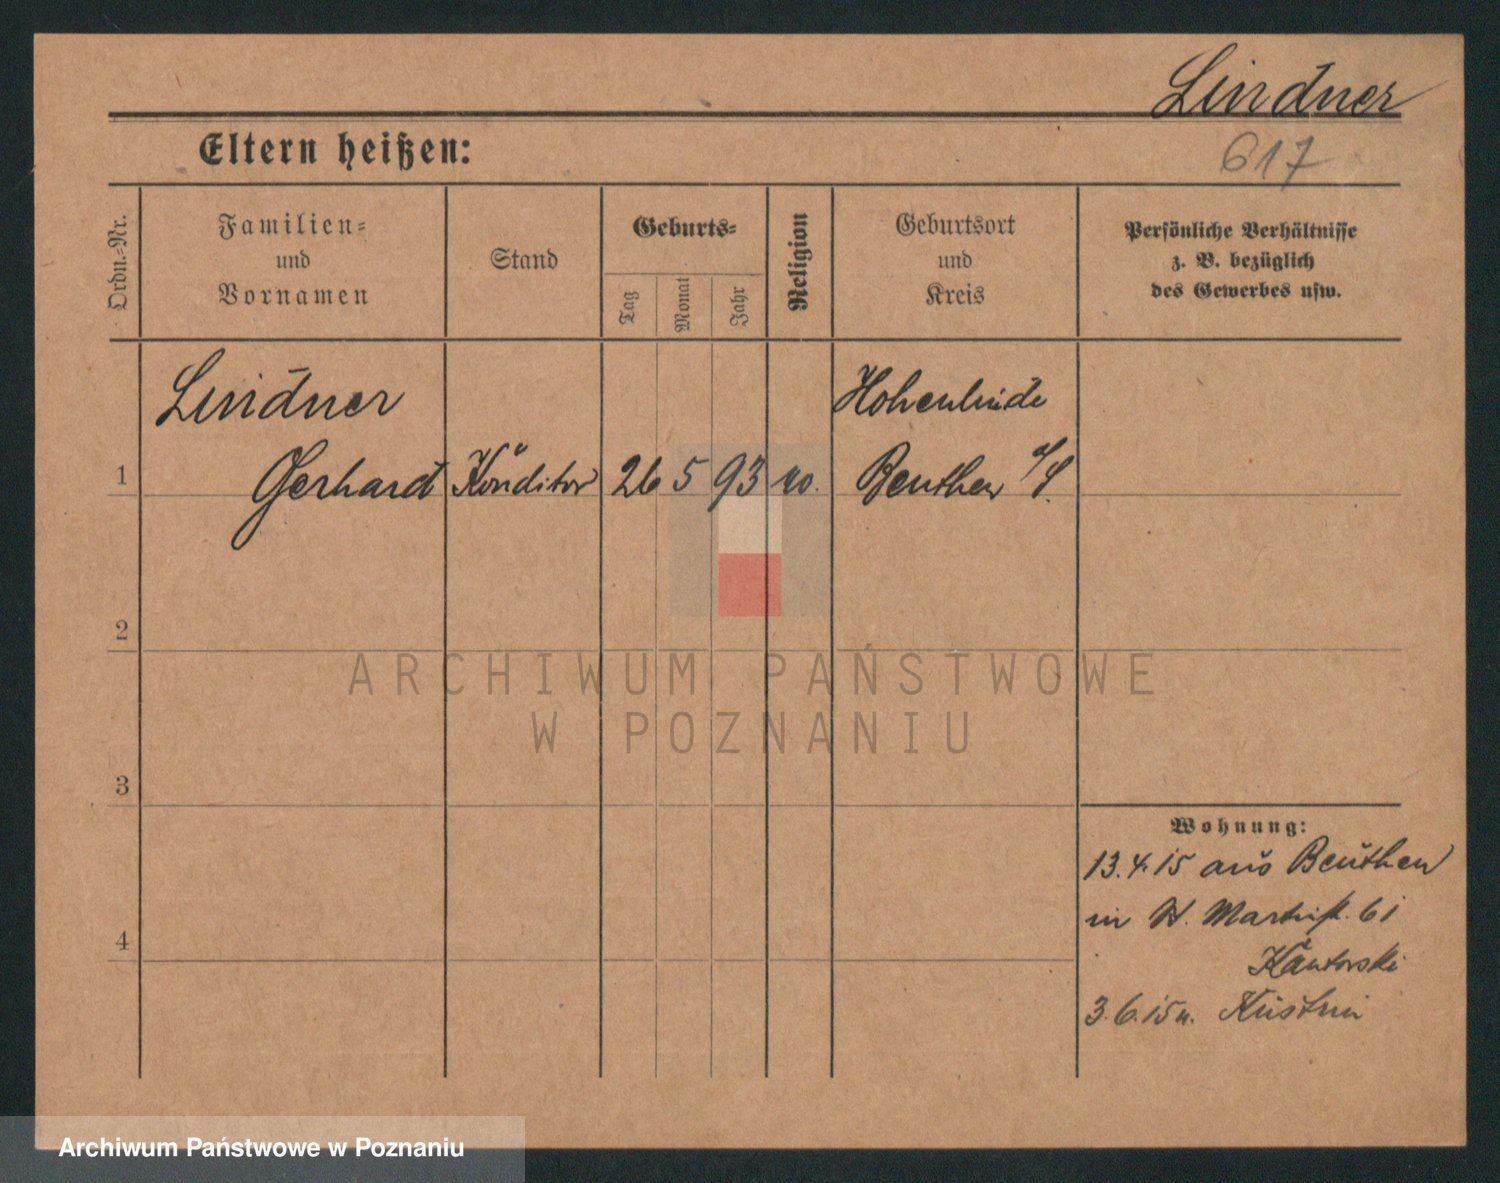 Lindner
617
Eltern heißen:
Ordn.-Nr.
Familien-
und
Vornamen
Stand
Geburts-
Tag
Monat
Jahr
Religion
Geburtsort
und
Kreis
Persönliche Verhältnisse
z. B. bezüglich
des Gewerbes usw.
Lindner
Hohenlinde
1
Gerhard
Konditor
26
5
93
Beuthen o/S.
2
ARCHIWUM PAŃSTWOWE
W POZNANIU
3
Wohnung:
13.4.15 aus Beuthen
in W. Martinst. 61
4
Kantorski
3.6.15 n. Küstrin
Archiwum Państwowe w Poznaniu